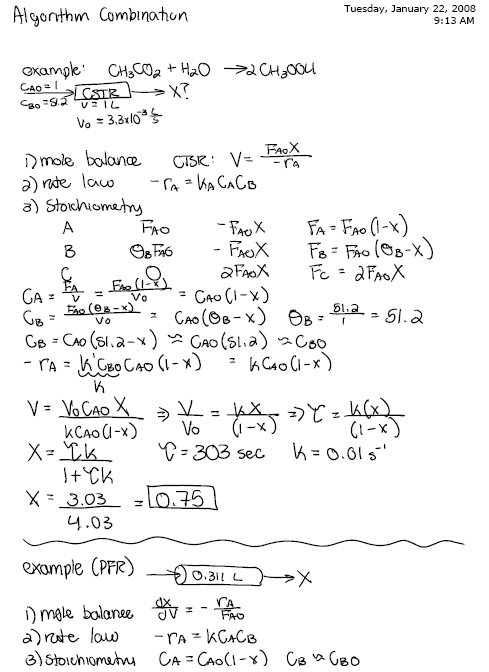 Algorithm Combination
Tuesday, January 22, 2008
9:13 AM
example: CH₃CO₂ + H₂O → 2CH₃OOH
CAO=1
CBO=51.2
CSTR → X?
V = 1L
V₀ = 3.3x10⁻³ L/s
1) mole balance CTSR: V = FAOX / -rA
2) rate law -rA = kACACB
3) Stoichiometry
A FAO -FAOX FA = FAO(1-X)
B ΘBFAO -FAOX FB = FAO(ΘB-X)
C O 2FAOX FC = 2FAOX
CA = FA/V = FAO(1-X)/V₀ = CAO(1-X)
CB = FAO(ΘB-X)/V₀ = CAO(ΘB-X) ΘB = 51.2/1 = 51.2
CB = CAO(51.2-X) ≈ CAO(51.2) ≈ CBO
-rA = k'CBOCAO(1-X) = kCAO(1-X)
k
V = V₀CAOX / kCAO(1-X) ⇒ V/V₀ = kX/(1-X) ⇒ τ = k(X)/(1-X)
X = τk / 1+τk τ = 303 sec k = 0.01 s⁻¹
X = 3.03 / 4.03 = 0.75
example (PFR) → 0.311 L → X
1) mole balance dx/dV = - rA/FAO
2) rate law -rA = kCACB
3) Stoichiometry CA = CAO(1-X) CB ≈ CBO